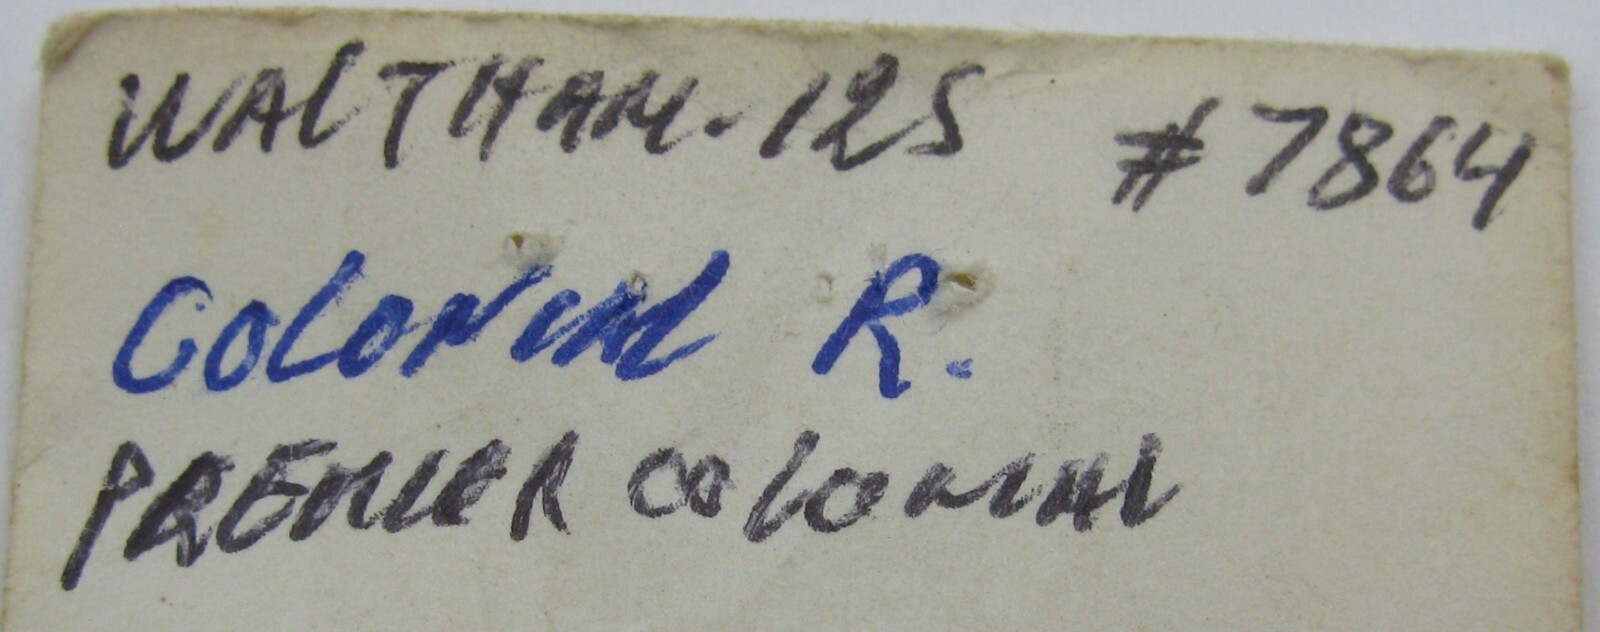 WALTHAM. 12S #7864
COLONIAL R.
PREMIER COLONIAL